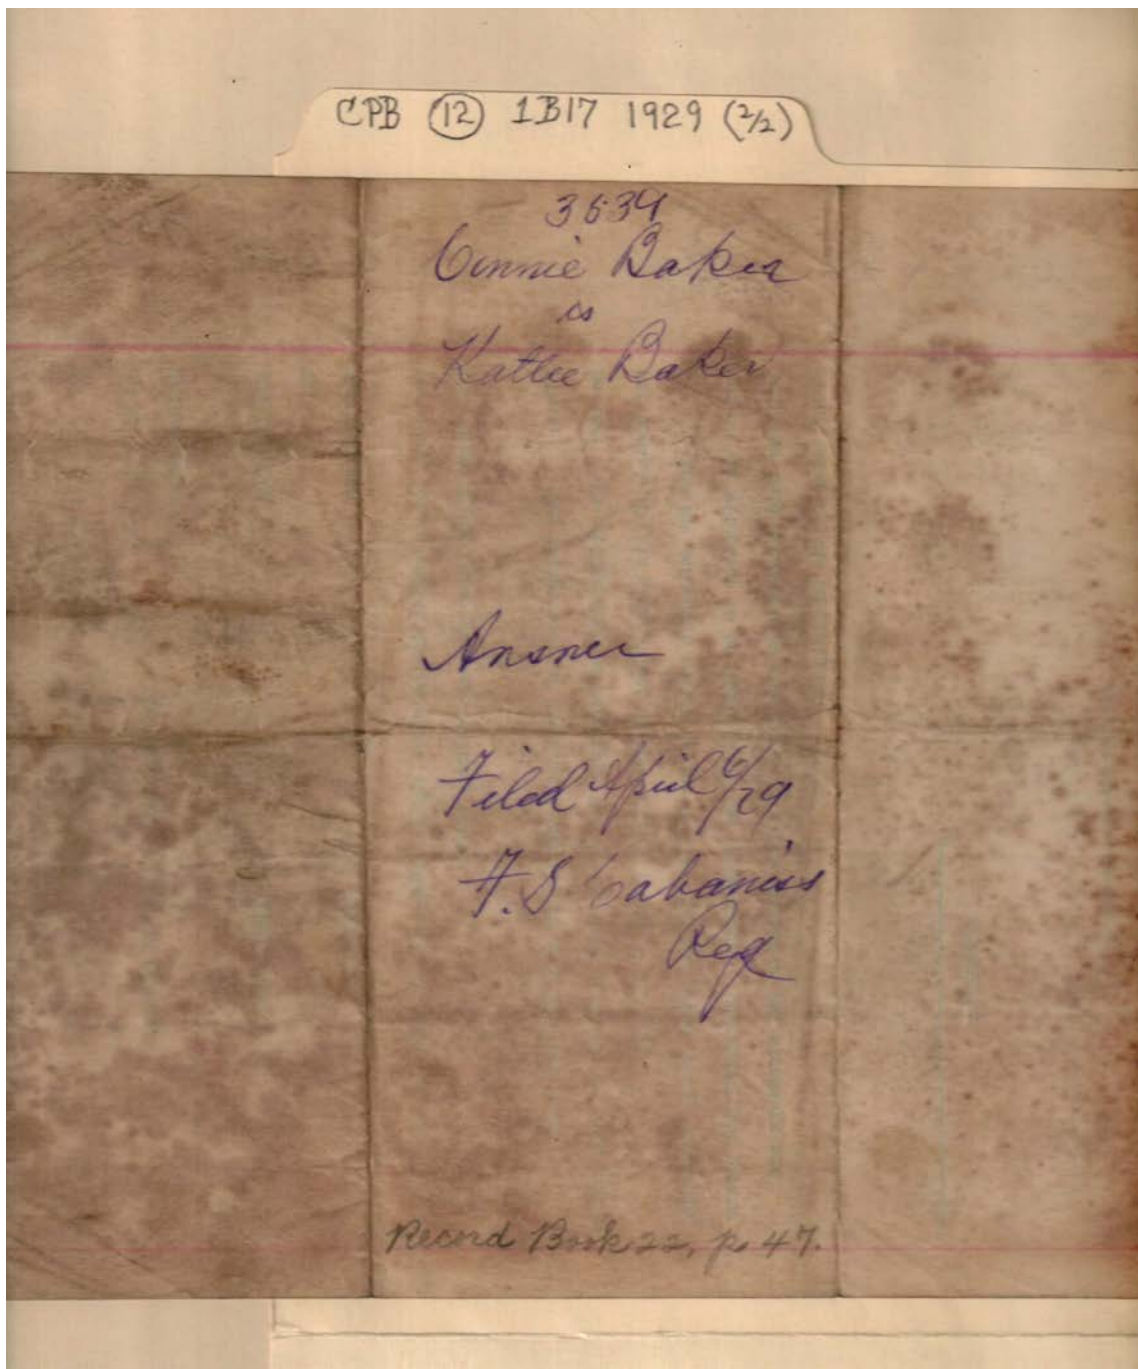 CPB (12) 1B17 1929 (2/2)
3539
Baker
vs
Baker
Answer
Filed April 6/29
F. S Cabaniss
Reg
Record Book 22, p. 47.